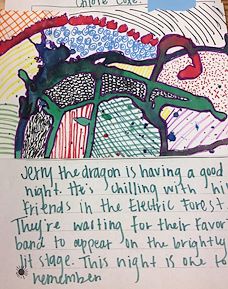 Chloie Cole.
Jerry the dragon is having a good
night. He's chilling with hi
friends in the Electric Forest.
They're waiting for their favor
band to appear on the brightly
lit stage. This night is one to
remember